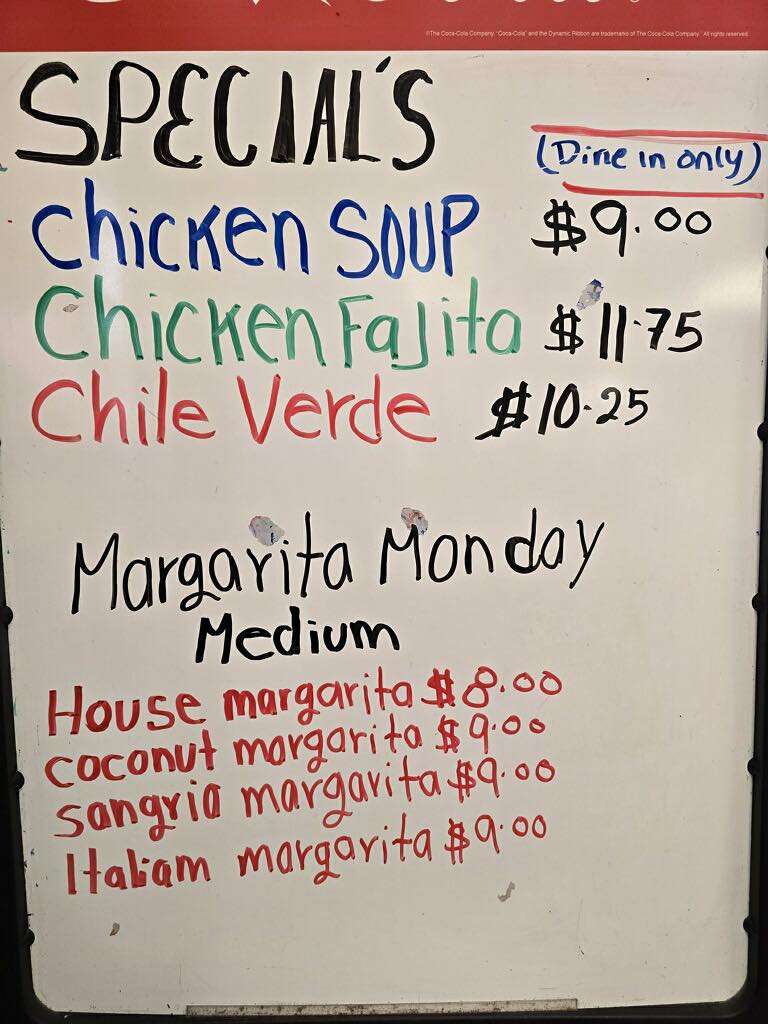 ©The Coca-Cola Company. "Coca-Cola" and the Dynamic Ribbon are trademarks of The Coca-Cola Company. All rights reserved.
SPECIAL'S
(Dine in only)
Chicken SOUP $9.00
Chicken Fajita $11.75
Chile Verde $10.25
Margarita Monday
Medium
House margarita $8.00
coconut margarita $9.00
sangria margarita $9.00
Italiam margarita $9.00